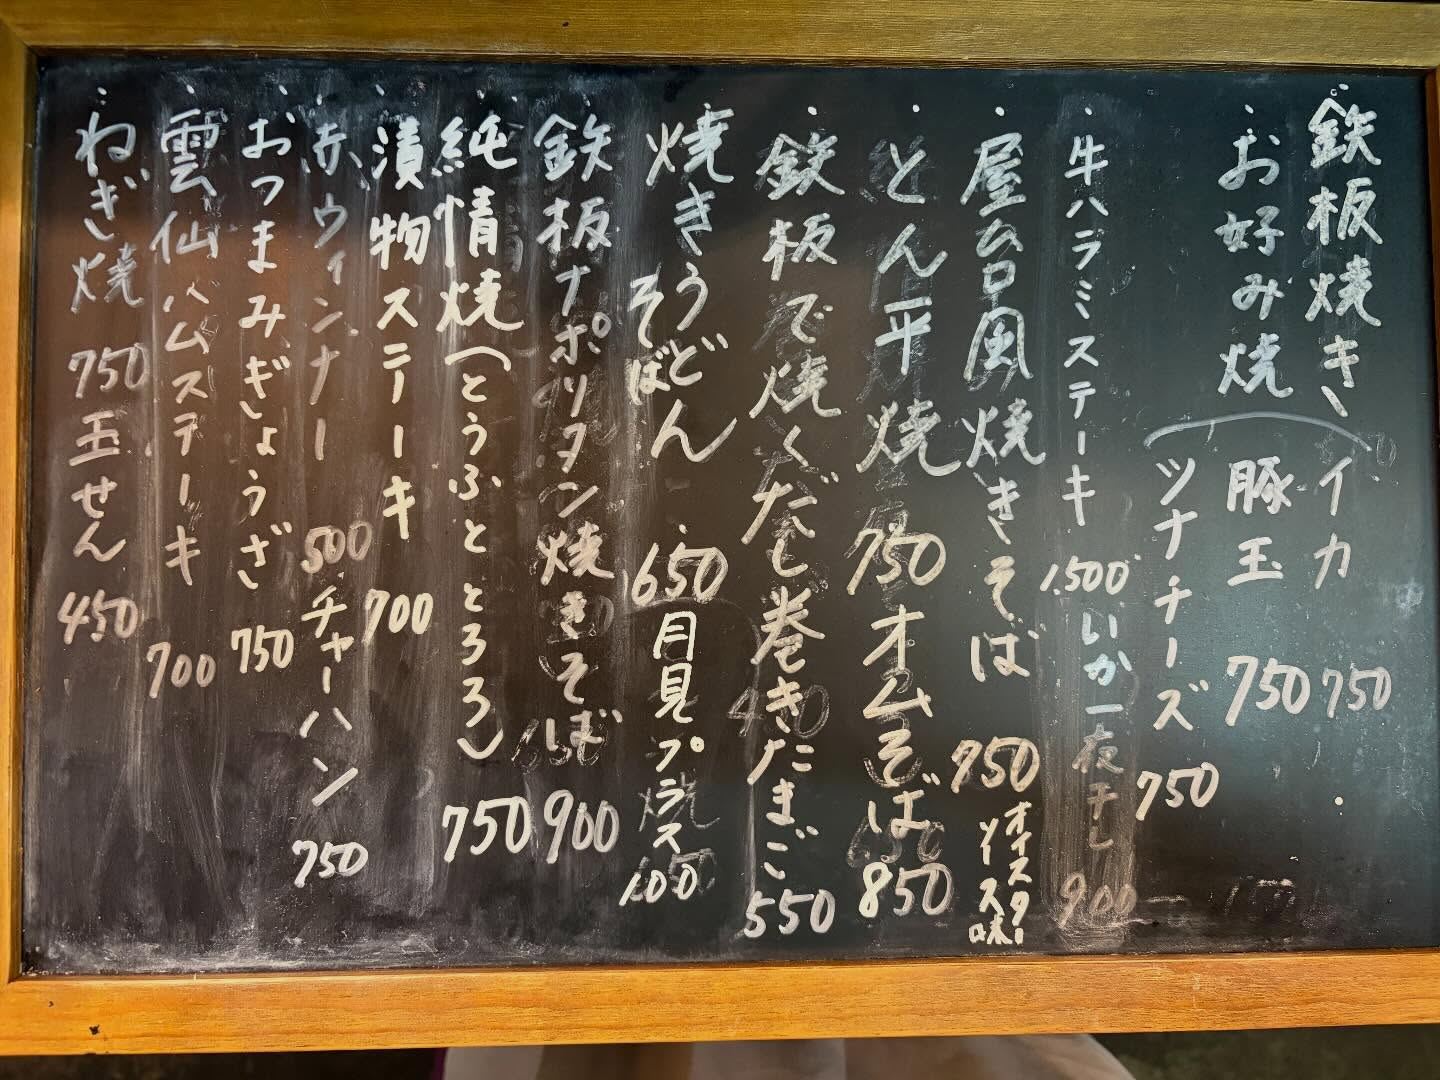 鉄板焼き イカ 750
お好み焼 豚玉 750
ツナチーズ 750
牛ハラミステーキ 1,500 いか一夜干し 900
屋ムロ風焼きそば 750 オイスターソース味
とん平焼 750 オムそば 850
鉄板で焼くだし巻きたまご 550
焼きうどん そば 650 月見プラス 100
鉄板ナポリタン焼きそば 900
純情焼(とうふととろろ) 750
漬物ステーキ 700
赤ウィンナー 500 チャーハン 750
おつまみぎょうざ 750
雲仙ハムステーキ 700
ねぎ焼 750 玉せん 450